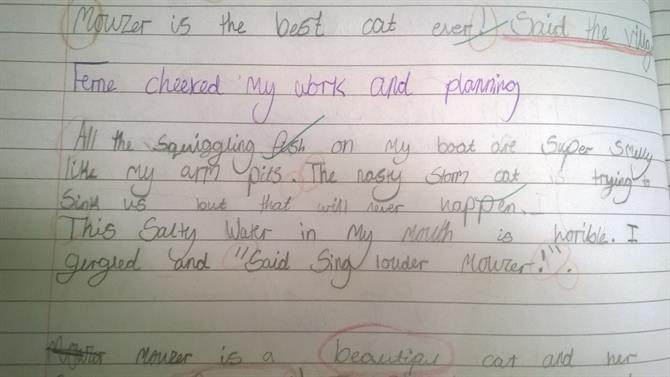 Mowzer is the best cat ever!" Said the villag
Ferne cheeked my work and planning
All the squiggling fish on my boat are super smelly
like my arm pits. The nasty storm cat is trying to
Sink us but that will never happen.
This Salty Water in My Mouth is horible. I
gergled and "Said Sing louder Mowzer!".
Mowzer is a beautiful cat and her